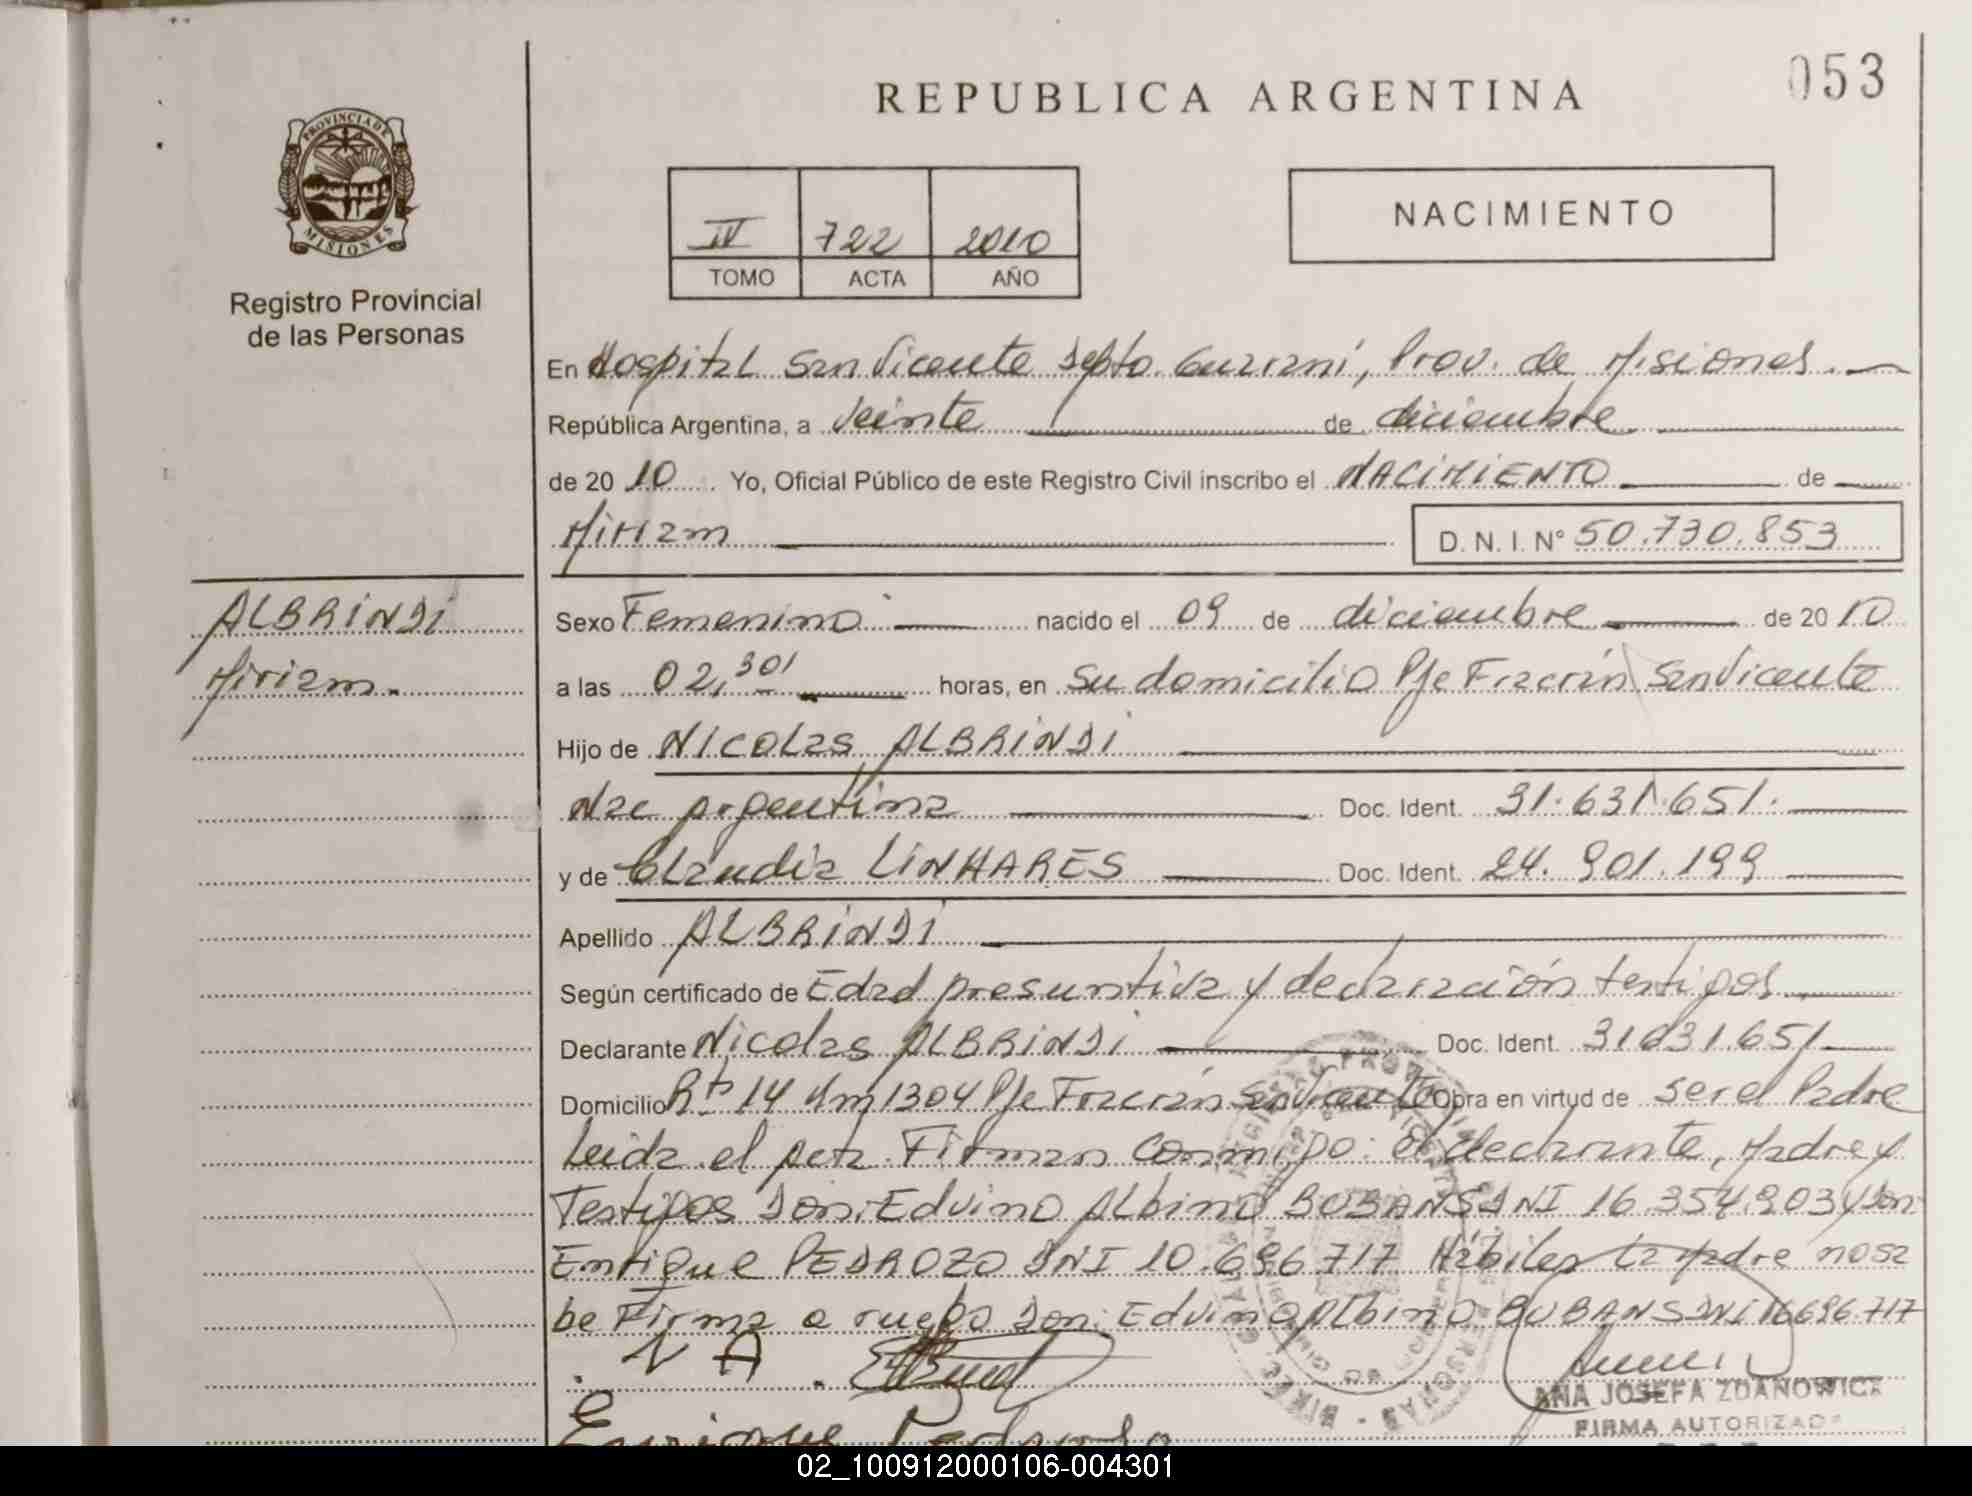 053
REPUBLICA ARGENTINA
PROVINCIA DE
MISIONES
Registro Provincial
de las Personas
IV 722 2010
TOMO ACTA AÑO
NACIMIENTO
En Hospital San Vicente Depto. Guaraní, Prov. de Misiones.
República Argentina, a veinte de diciembre
de 20 10 Yo, Oficial Público de este Registro Civil inscribo el NACIMIENTO de
Miriam D. N. I. Nº 50.730.853
ALBRINDI
Miriam.
Sexo Femenino nacido el 09 de diciembre de 20 10
a las 02,30' horas, en su domicilio Pje Fracrán San Vicente
Hijo de Nicolas ALBRINDI
Nac Argentina Doc. Ident. 31.631.651.
y de Claudia LINHARES Doc. Ident. 24.901.199
Apellido ALBRINDI
Según certificado de Edad presuntiva y declaración testigos
Declarante Nicolas ALBRINDI Doc. Ident. 31631.651
Domicilio Rta 14 Km 1304 Pje Fracrán San Vicente Obra en virtud de ser el Padre
Leida el acta Firman conmigo: el declarante, Madre y
Testigos Don: Edvino Albino BUBANS DNI 16.354.903 y Don:
Enrique PEDROZO DNI 10.696.717 Hábiles la Madre no sa
be Firma a ruego Don: Edvino Albino BUBANS DNI 16696.717
N A
Enrique
ANA JOSEFA ZDANOWICZ
FIRMA AUTORIZADA
02_100912000106-004301